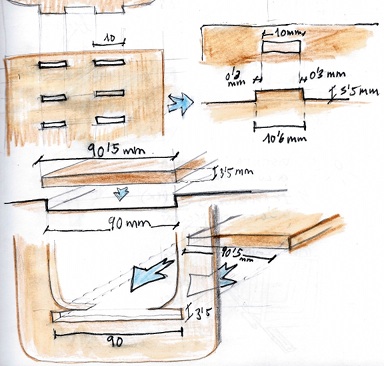 10
10mm
0'3 mm
0'3 mm
3'5 mm
10'6 mm
90'5 mm
3'5 mm
90 mm
90'5 mm
3'5
90